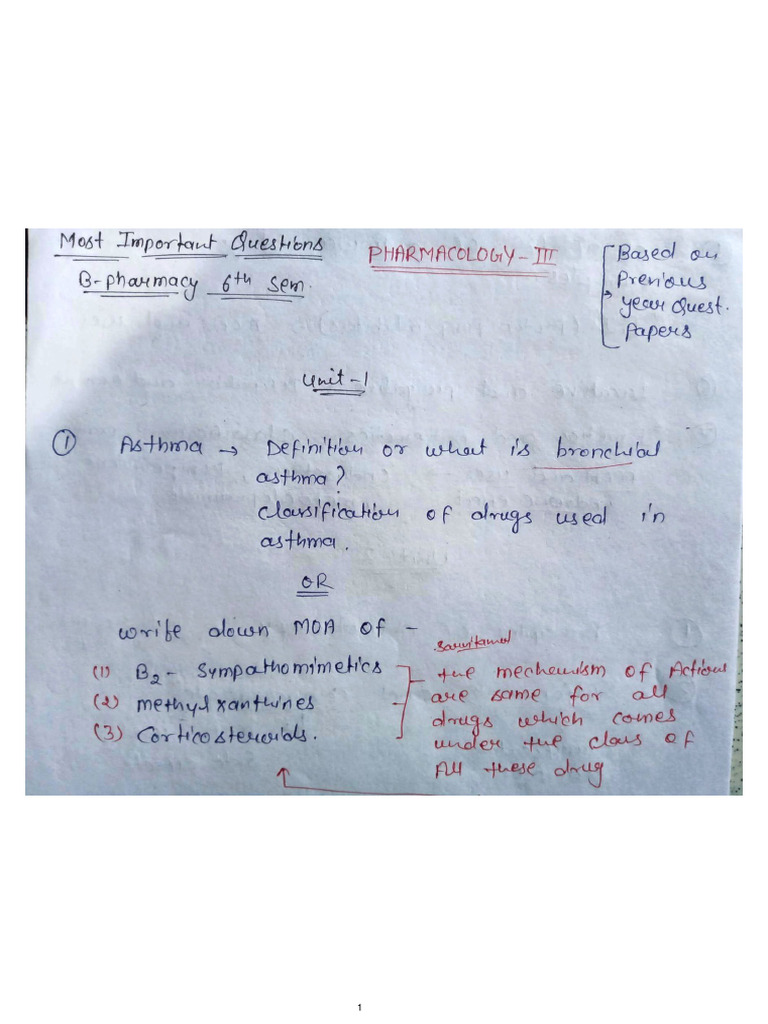 Most Important Questions
B-pharmacy 6th sem.
PHARMACOLOGY-III
Based on
Previous
year Quest.
Papers
Unit-1
① Asthma → Definition or what is bronchial
asthma?
classification of drugs used in
asthma.
OR
write down MOA of -
(1) B2 - Sympathomimetics
(2) methylxanthines
(3) Corticosteroids.
the mechenism of Actions
are same for all
drugs which comes
under the class of
All these drug
1